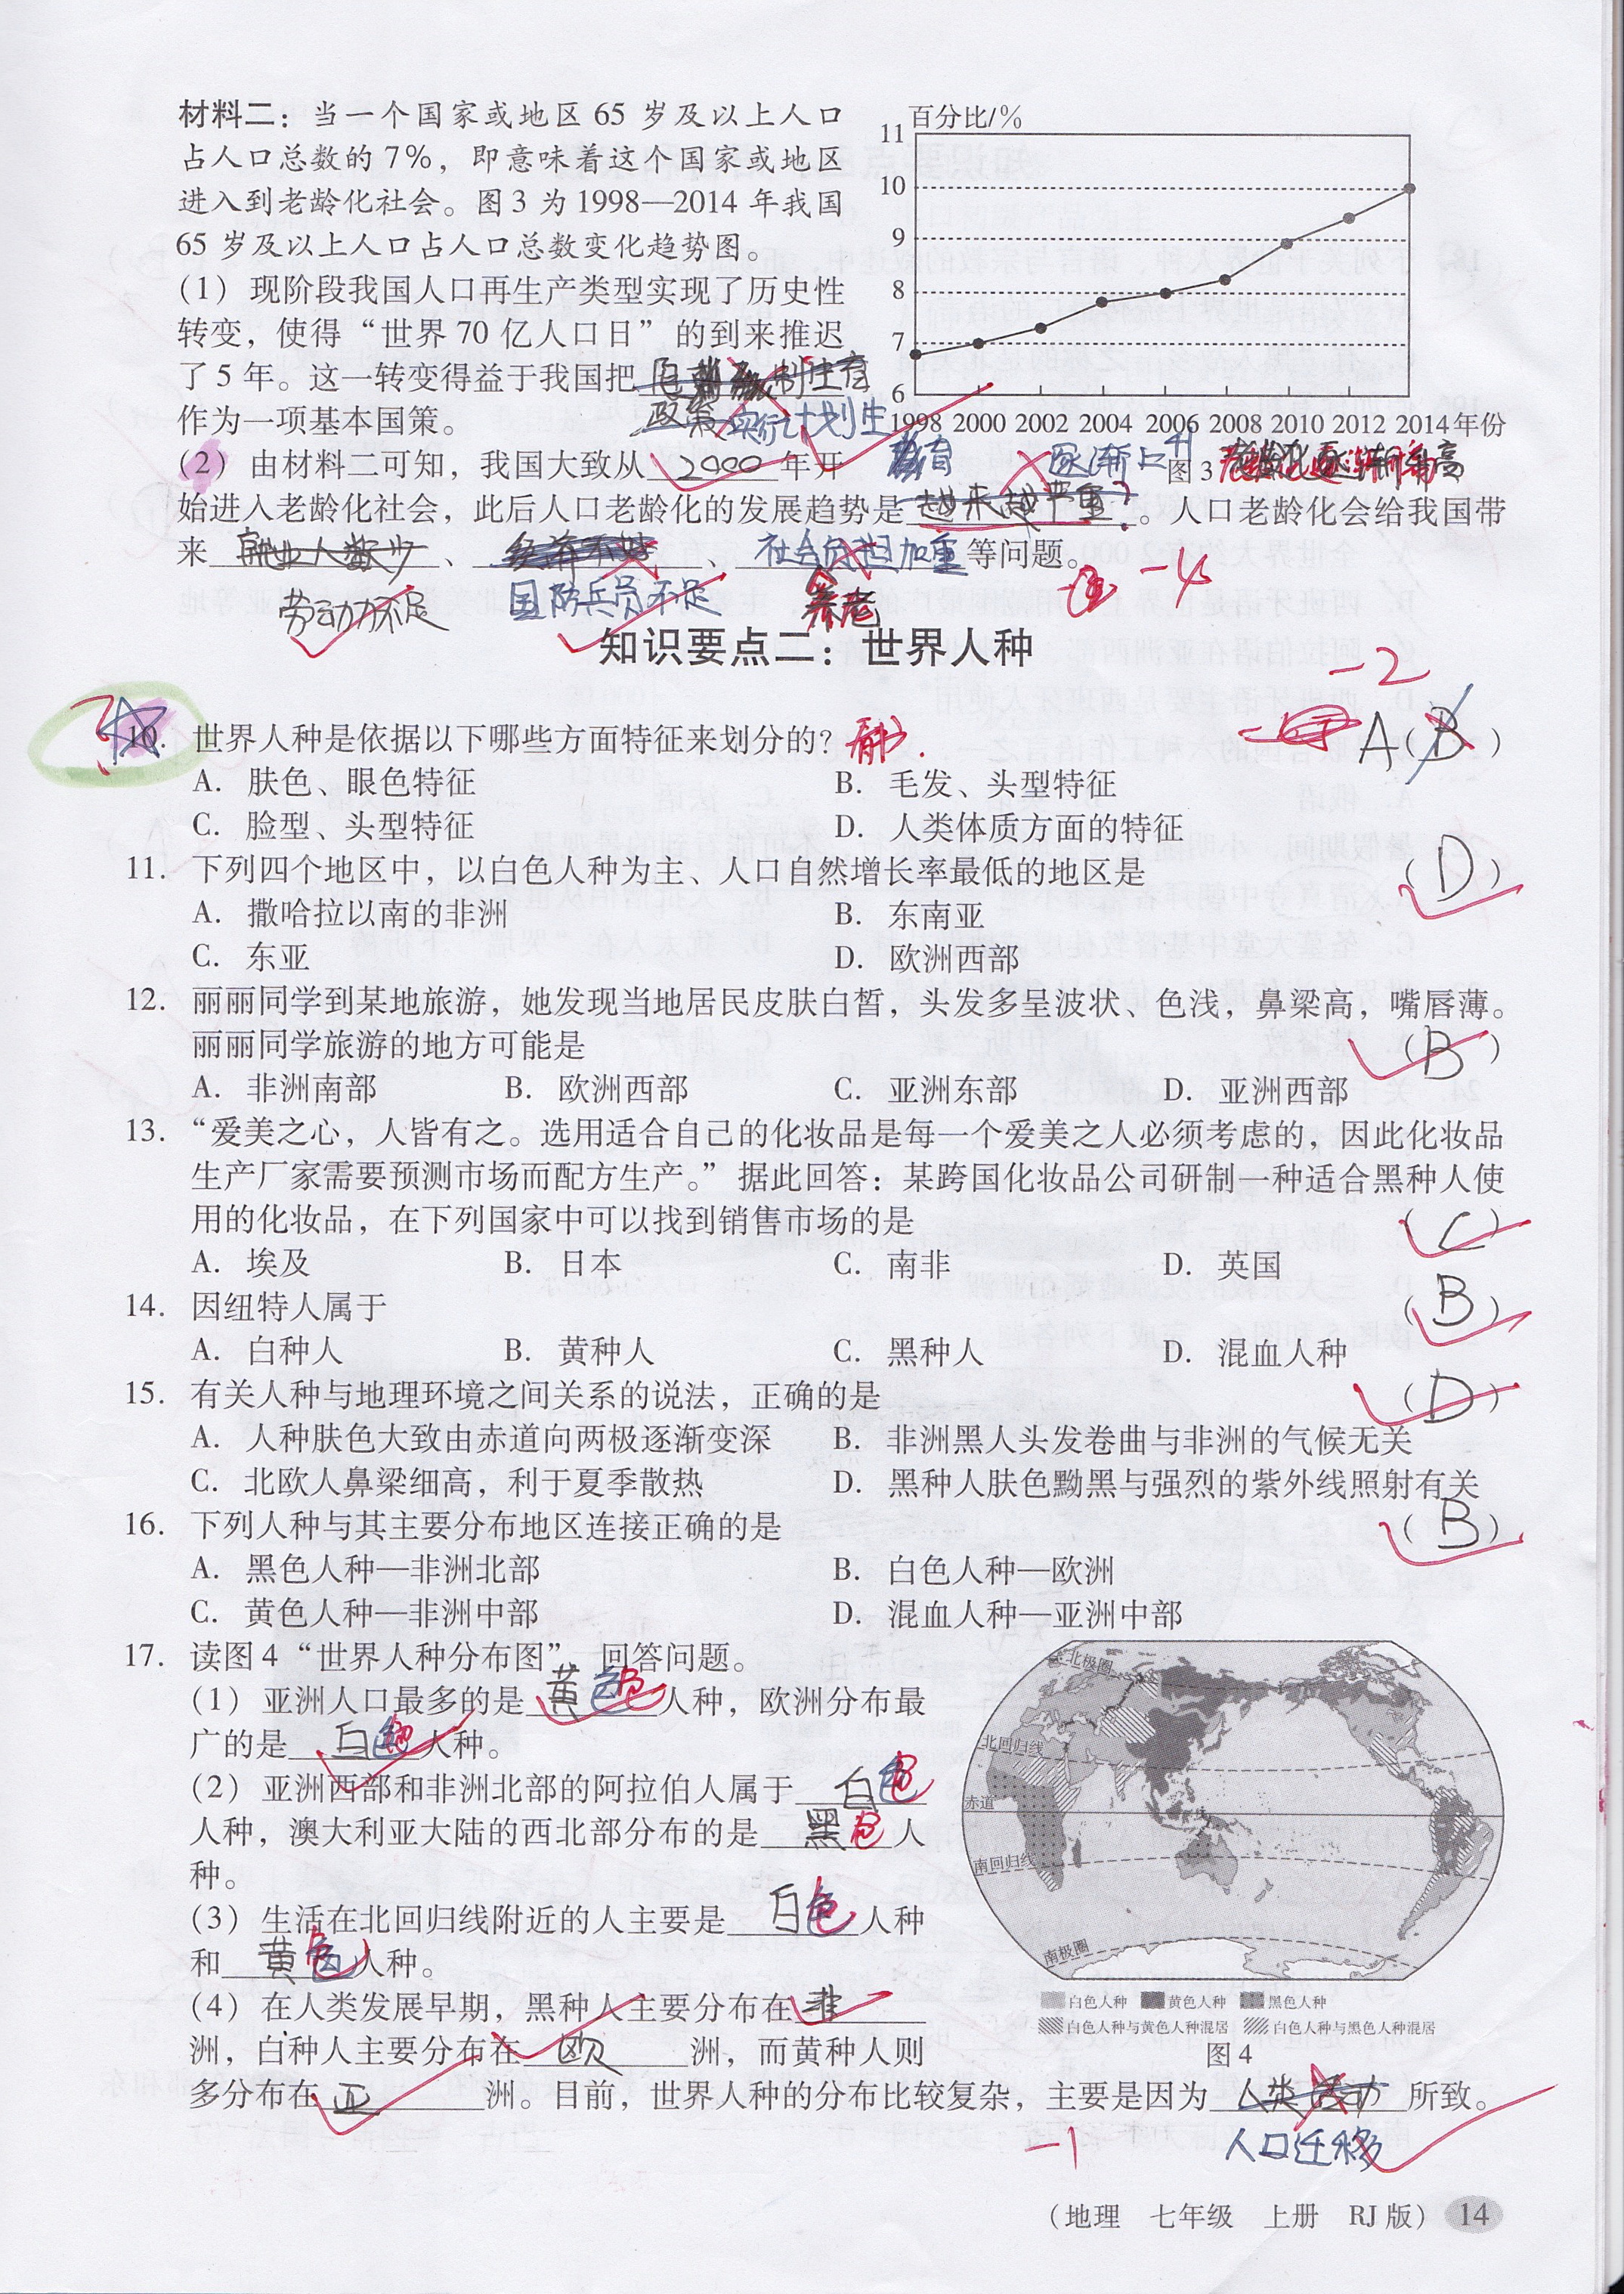 材料二：当一个国家或地区 65 岁及以上人口
占人口总数的 7%，即意味着这个国家或地区
进入到老龄化社会。图 3 为 1998—2014 年我国
65 岁及以上人口占人口总数变化趋势图。
百分比/%
11
10
9
8
7
6
1998 2000 2002 2004 2006 2008 2010 2012 2014 年份
图 3
（1）现阶段我国人口再生产类型实现了历史性
转变，使得“世界 70 亿人口日”的到来推迟
了 5 年。这一转变得益于我国把
政策 实行计划生育
作为一项基本国策。
（2）由材料二可知，我国大致从 2000 年开
逐渐
始进入老龄化社会，此后人口老龄化的发展趋势是 越来越严重 。人口老龄化会给我国带
来 就业人数少 、 经济不好 、 社会负担加重 等问题。
劳动力不足 国防兵员不足 养老
-4
知识要点二：世界人种
-2
10. 世界人种是依据以下哪些方面特征来划分的？ 背书. A（B）
A. 肤色、眼色特征 B. 毛发、头型特征
C. 脸型、头型特征 D. 人类体质方面的特征
11. 下列四个地区中，以白色人种为主、人口自然增长率最低的地区是 （D）
A. 撒哈拉以南的非洲 B. 东南亚
C. 东亚 D. 欧洲西部
12. 丽丽同学到某地旅游，她发现当地居民皮肤白皙，头发多呈波状、色浅，鼻梁高，嘴唇薄。
丽丽同学旅游的地方可能是 （B）
A. 非洲南部 B. 欧洲西部 C. 亚洲东部 D. 亚洲西部
13. “爱美之心，人皆有之。选用适合自己的化妆品是每一个爱美之人必须考虑的，因此化妆品
生产厂家需要预测市场而配方生产。”据此回答：某跨国化妆品公司研制一种适合黑种人使
用的化妆品，在下列国家中可以找到销售市场的是 （C）
A. 埃及 B. 日本 C. 南非 D. 英国
14. 因纽特人属于 （B）
A. 白种人 B. 黄种人 C. 黑种人 D. 混血人种
15. 有关人种与地理环境之间关系的说法，正确的是 （D）
A. 人种肤色大致由赤道向两极逐渐变深 B. 非洲黑人头发卷曲与非洲的气候无关
C. 北欧人鼻梁细高，利于夏季散热 D. 黑种人肤色黝黑与强烈的紫外线照射有关
16. 下列人种与其主要分布地区连接正确的是 （B）
A. 黑色人种—非洲北部 B. 白色人种—欧洲
C. 黄色人种—非洲中部 D. 混血人种—亚洲中部
17. 读图 4“世界人种分布图”，回答问题。
（1）亚洲人口最多的是 黄色 人种，欧洲分布最
广的是 白色 人种。
（2）亚洲西部和非洲北部的阿拉伯人属于 白色
人种，澳大利亚大陆的西北部分布的是 黑色 人
种。
（3）生活在北回归线附近的人主要是 白色 人种
和 黄色 人种。
（4）在人类发展早期，黑种人主要分布在 非
洲，白种人主要分布在 欧 洲，而黄种人则
多分布在 亚 洲。目前，世界人种的分布比较复杂，主要是因为 人类活动 所致。
-1 人口迁移
北极圈
北回归线
赤道
南回归线
南极圈
白色人种 黄色人种 黑色人种
白色人种与黄色人种混居 白色人种与黑色人种混居
图 4
（地理 七年级 上册 RJ 版） 14